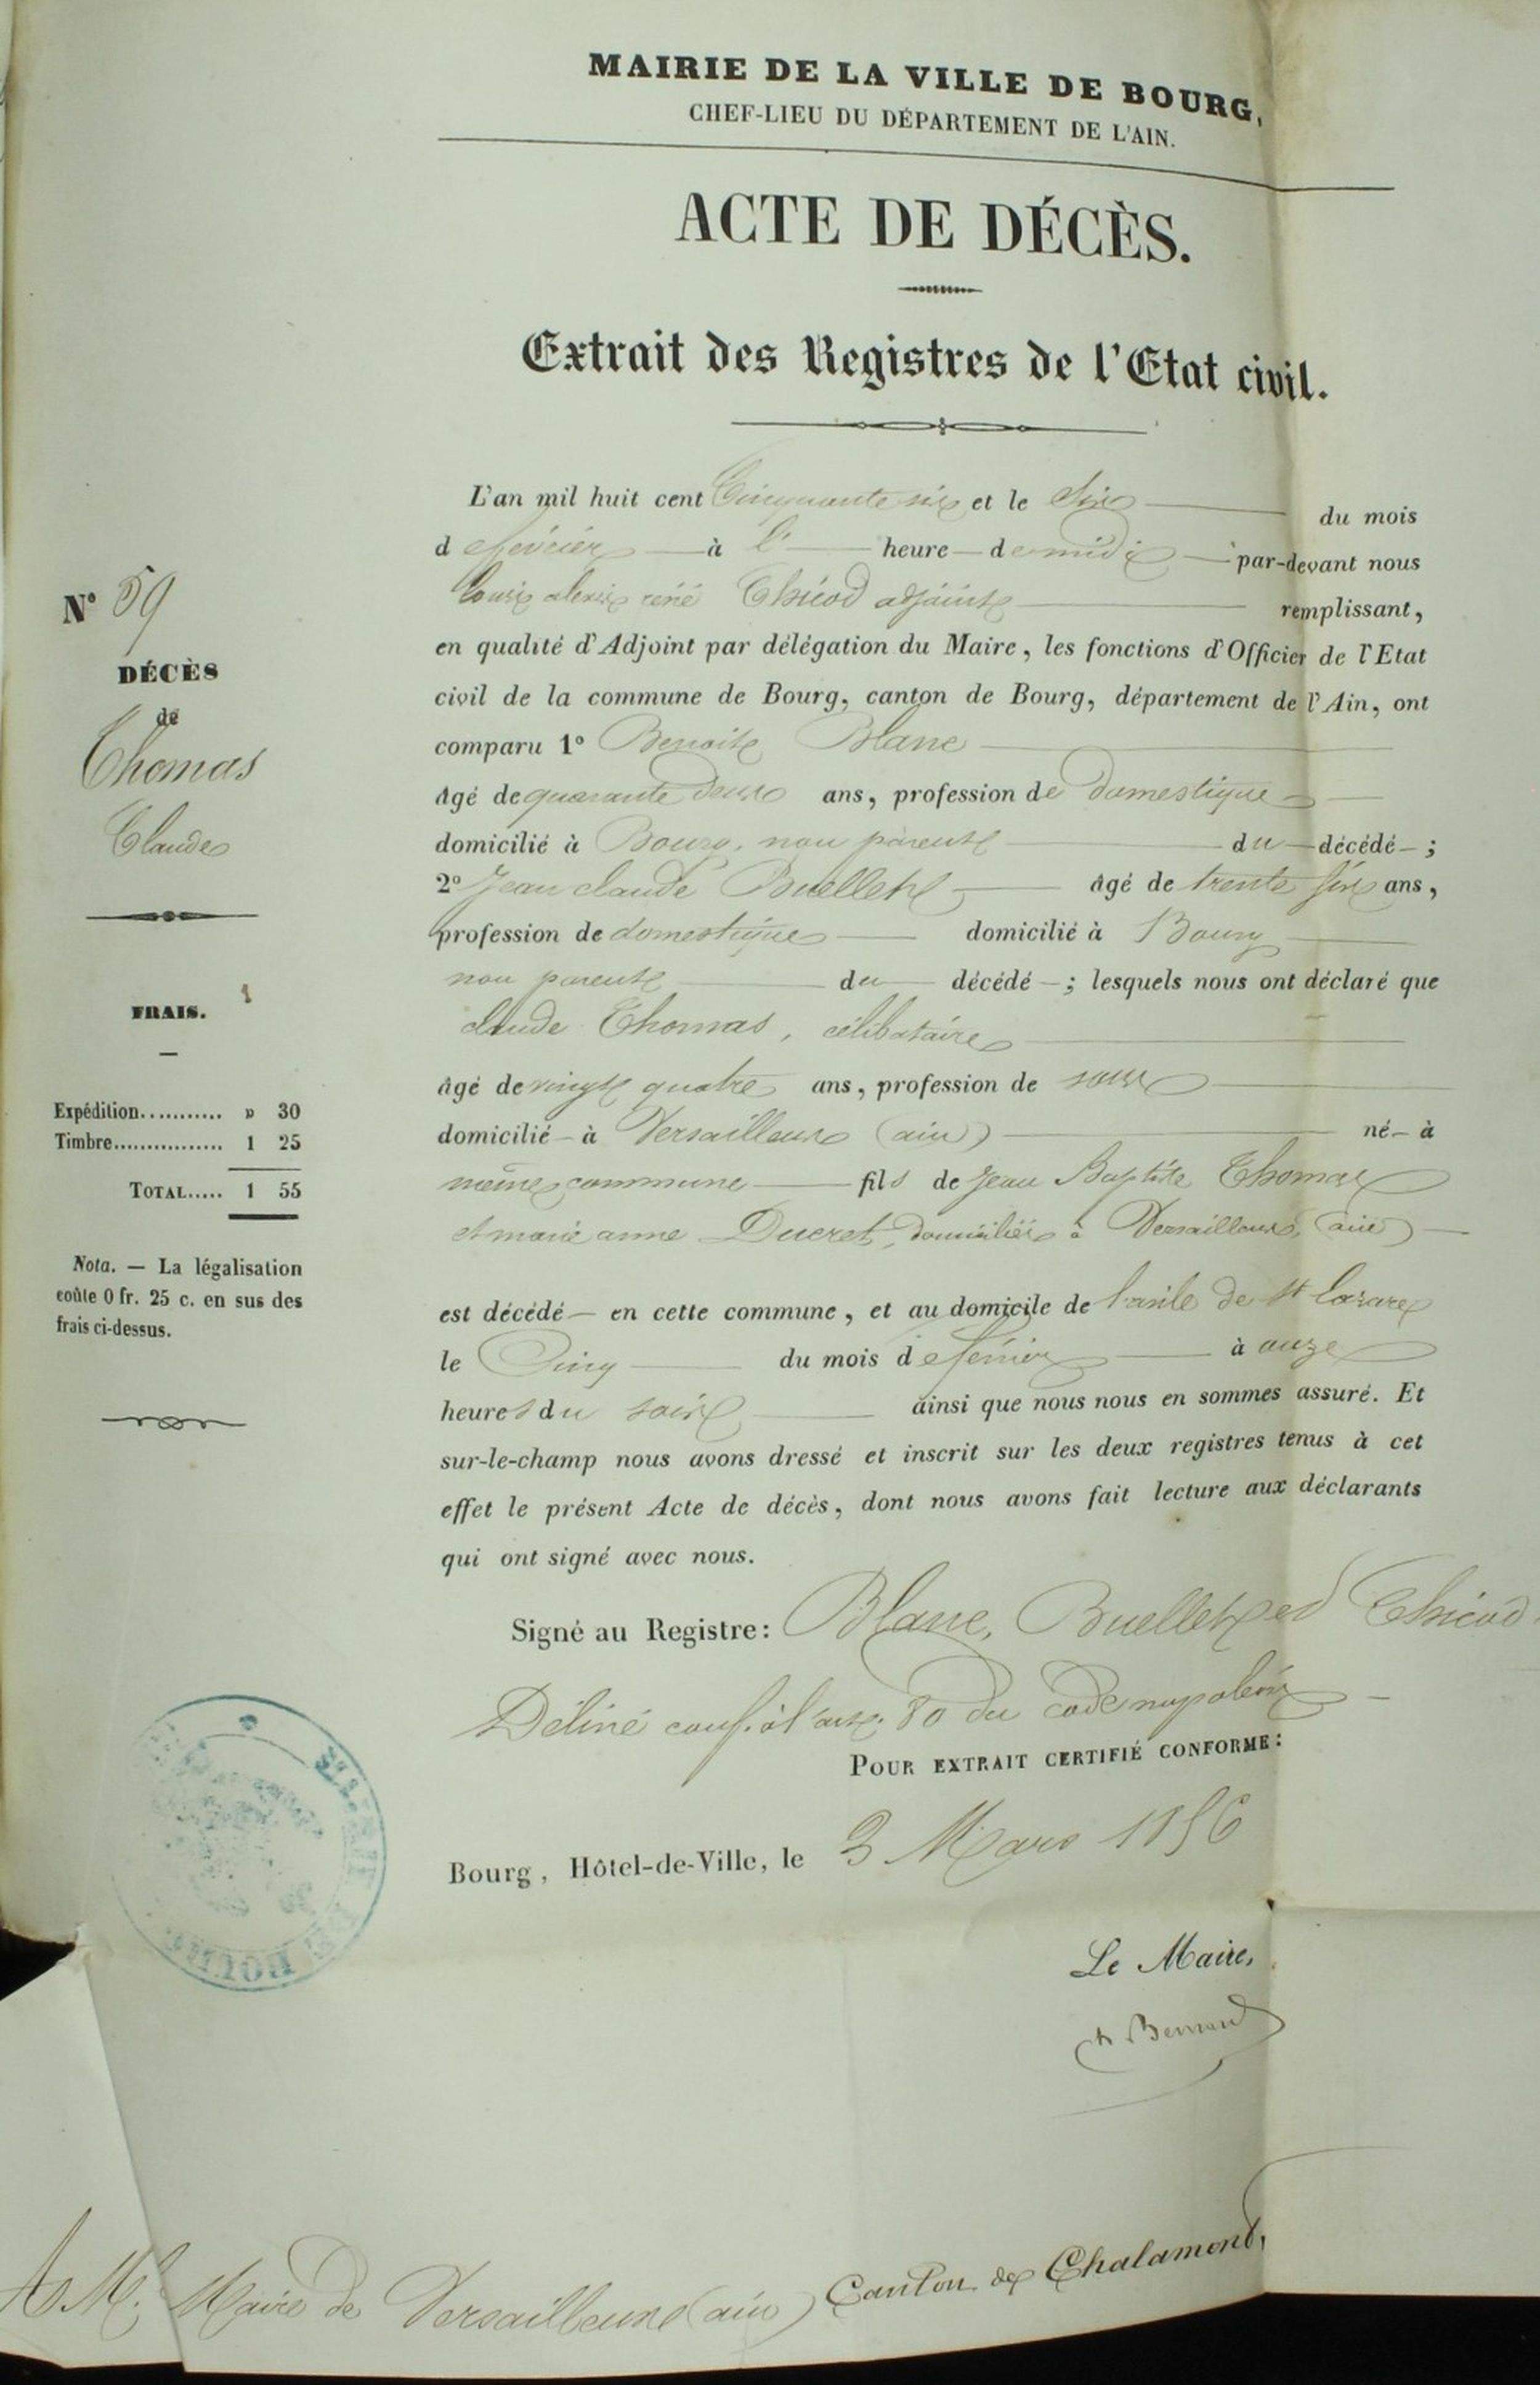 MAIRIE DE LA VILLE DE BOURG,
CHEF-LIEU DU DÉPARTEMENT DE L'AIN.
ACTE DE DÉCÈS.
Extrait des Registres de l'Etat civil.
N° 59
DÉCÈS
de
Thomas
Claude
FRAIS.
Expédition........... » 30
Timbre................ 1 25
TOTAL..... 1 55
Nota. — La légalisation
coûte 0 fr. 25 c. en sus des
frais ci-dessus.
L'an mil huit cent Cinquante six et le Six du mois
de février à heure de midi par-devant nous
Louis alexis réné Chicod adjoint remplissant,
en qualité d'Adjoint par délégation du Maire, les fonctions d'Officier de l'Etat
civil de la commune de Bourg, canton de Bourg, département de l'Ain, ont
comparu 1° Benoit Blanc
âgé de quarante deux ans, profession de domestique
domicilié à Bourg, non parent du décédé ;
2° Jean claude Buellet âgé de trente six ans,
profession de domestique domicilié à Bourg
non parent du décédé — ; lesquels nous ont déclaré que
claude Thomas, célibataire
âgé de vingt quatre ans, profession de sans
domicilié à Versailleux (ain) né à
même commune fils de Jean Baptiste Thomas
et marie anne Ducret, domiciliés à Versailleux (ain)
est décédé en cette commune, et au domicile de l'asile de St Lazare
le Cinq du mois de février à onze
heures du soir ainsi que nous nous en sommes assuré. Et
sur-le-champ nous avons dressé et inscrit sur les deux registres tenus à cet
effet le présent Acte de décès, dont nous avons fait lecture aux déclarants
qui ont signé avec nous.
Signé au Registre: Blanc, Buellet et Chicod
Délivré conf. à l'art. 80 du code napoléon
POUR EXTRAIT CERTIFIÉ CONFORME:
Bourg, Hôtel-de-Ville, le 3 Mars 1856
Le Maire,
Bernard
A M. Maire de Versailleux (ain) Canton de Chalamont,